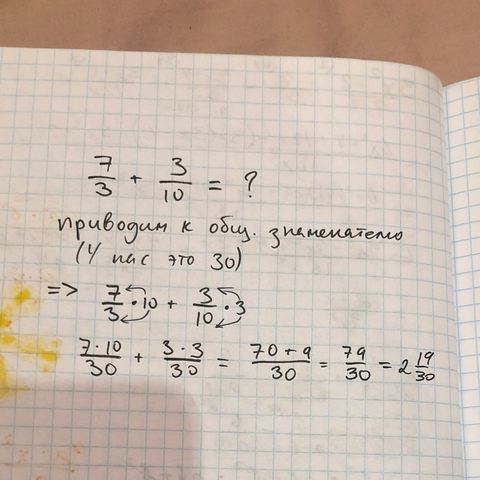 7/3 + 3/10 = ?
приводим к общ. знаменателю
(У нас это 30)
=> 7/3 · 10 + 3/10 · 3
7·10/30 + 3·3/30 = 70+9/30 = 79/30 = 2 19/30